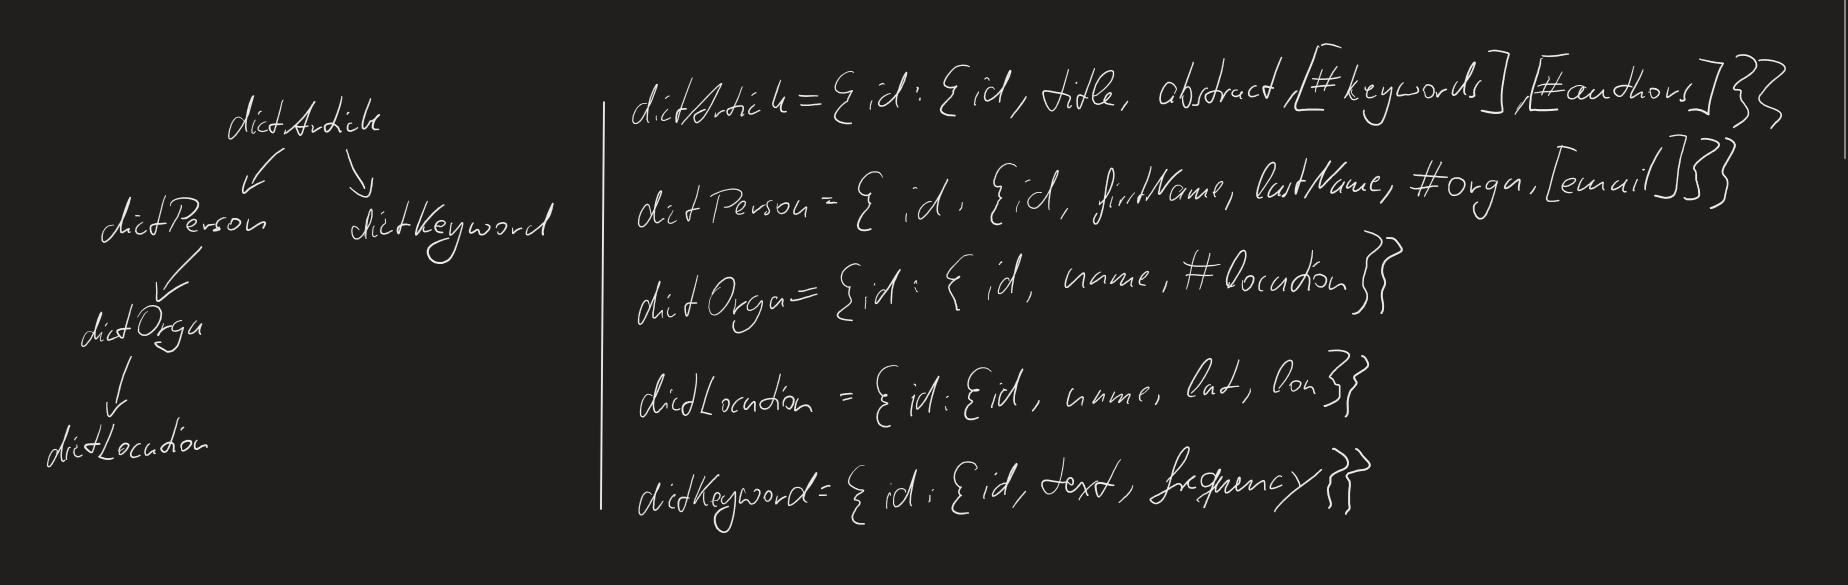 dictArticle
dictPerson
dictKeyword
dictOrga
dictLocation
dictArticle = { id : { id, title, abstract, [#keywords], [#authors] }}
dictPerson = { id : { id, firstName, lastName, #orga, [email] }}
dictOrga = { id : { id, name, #location }}
dictLocation = { id : { id, name, lat, lon }}
dictKeyword = { id : { id, text, frequency }}